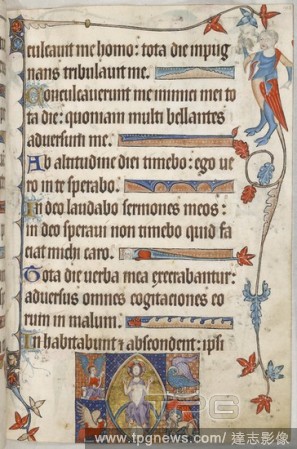 culcauit me homo: tota die impug
nans tribulauit me.
Conculcauerunt me inimici mei to
ta die: quoniam multi bellantes
aduersum me.
Ab altitudine diei timebo: ego ue
ro in te sperabo.
In deo laudabo sermones meos:
in deo speraui non timebo quid fa
ciat michi caro.
Tota die uerba mea execrabantur:
aduersus omnes cogitaciones eo
rum in malum.
Inhabitabunt ⁊ abscondent: ipsi
TPG
www.tpgnews.com / 達志影像